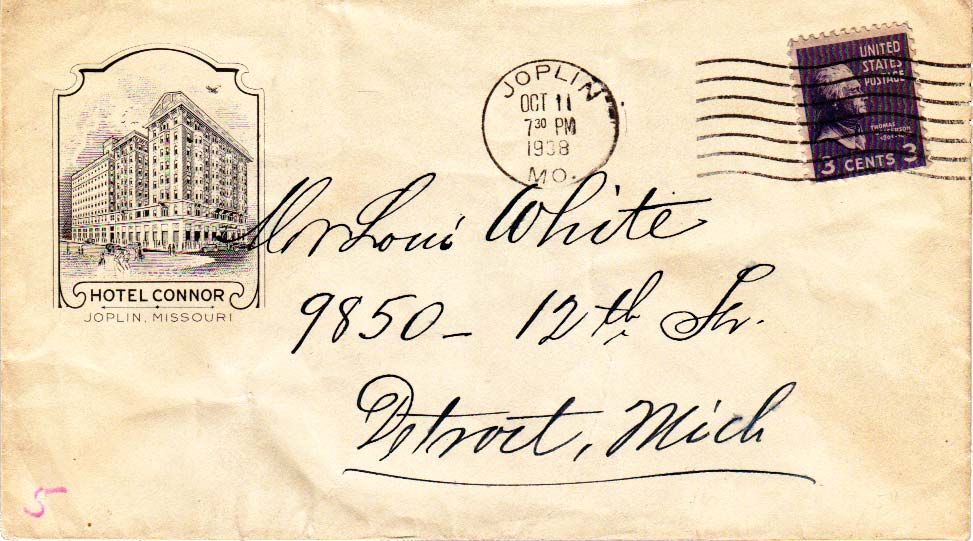 HOTEL CONNOR
JOPLIN, MISSOURI
JOPLIN
OCT 11
7 30 PM
1938
MO.
UNITED
STATES
POSTAGE
THOMAS
JEFFERSON
3 CENTS 3
Mr Loui White
9850 – 12th St.
Detroit, Mich
5